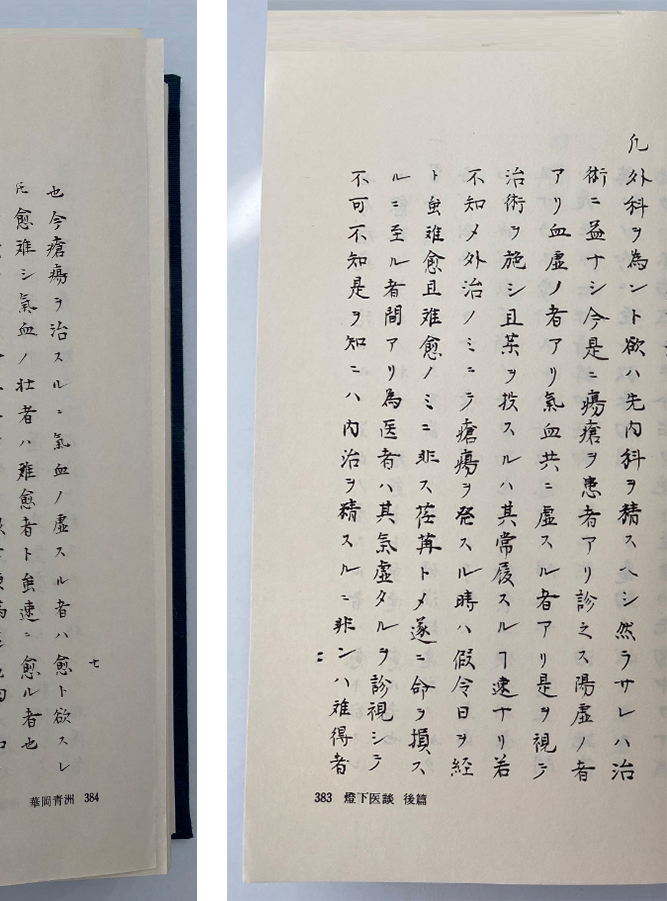 凢外科ヲ為ント欲ハ先内科ヲ精スヘシ然ラサレハ治
術ニ益ナシ今是ニ瘍瘡ヲ患者アリ診之ス陽虚ノ者
アリ血虚ノ者アリ氣血共ニ虚スル者アリ是ヲ視テ
治術ヲ施シ且薬ヲ投スルハ其常履スルヿ速ナリ若
不知〆外治ノミニテ瘡瘍ヲ発スル時ハ假令日ヲ経
ト虽難愈且難愈ノミニ非ス荏苒ト〆遂ニ命ヲ損ス
ルニ至ル者間アリ為医者ハ其氣虚タルヲ診視シテ
不可不知是ヲ知ニハ内治ヲ精スルニ非ンハ難得者
383 燈下医談 後篇
七
也今瘡瘍ヲ治スルニ氣血ノ虚スル者ハ愈ト欲スレ
𪜈愈難シ氣血ノ壮者ハ難愈者ト虽速ニ愈ル者也
華岡青洲 384